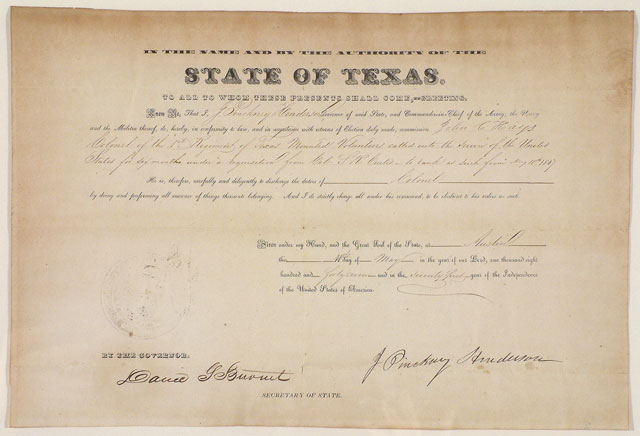 IN THE NAME AND BY THE AUTHORITY OF THE
STATE OF TEXAS.
TO ALL TO WHOM THESE PRESENTS SHALL COME, SEND GREETING.
Know Ye, That I, J Pinckney Henderson Governor of said State, and Commander-in-Chief of the Army, the Navy
and the Militia thereof, do, hereby, in conformity to law, and in accordance with returns of Election duly made, commission John C Hays
Colonel of the 1st Regiment of Texas Mounted Volunteers called into the Service of the United
States for six months under a requisition from Col. S R Curtis to rank as such from May 10th 1847
He is, therefore, carefully and diligently to discharge the duties of Colonel
by doing and performing all manner of things thereunto belonging. And I do strictly charge all under his command, to be obedient to his orders as such.
Given under my Hand, and the Great Seal of the State, at Austin
this day of May in the year of our Lord, one thousand eight
hundred and forty seven and in the Seventy first year of the Independence
of the United States of America.
BY THE GOVERNOR.
David G Burnet
J Pinckney Henderson
SECRETARY OF STATE.